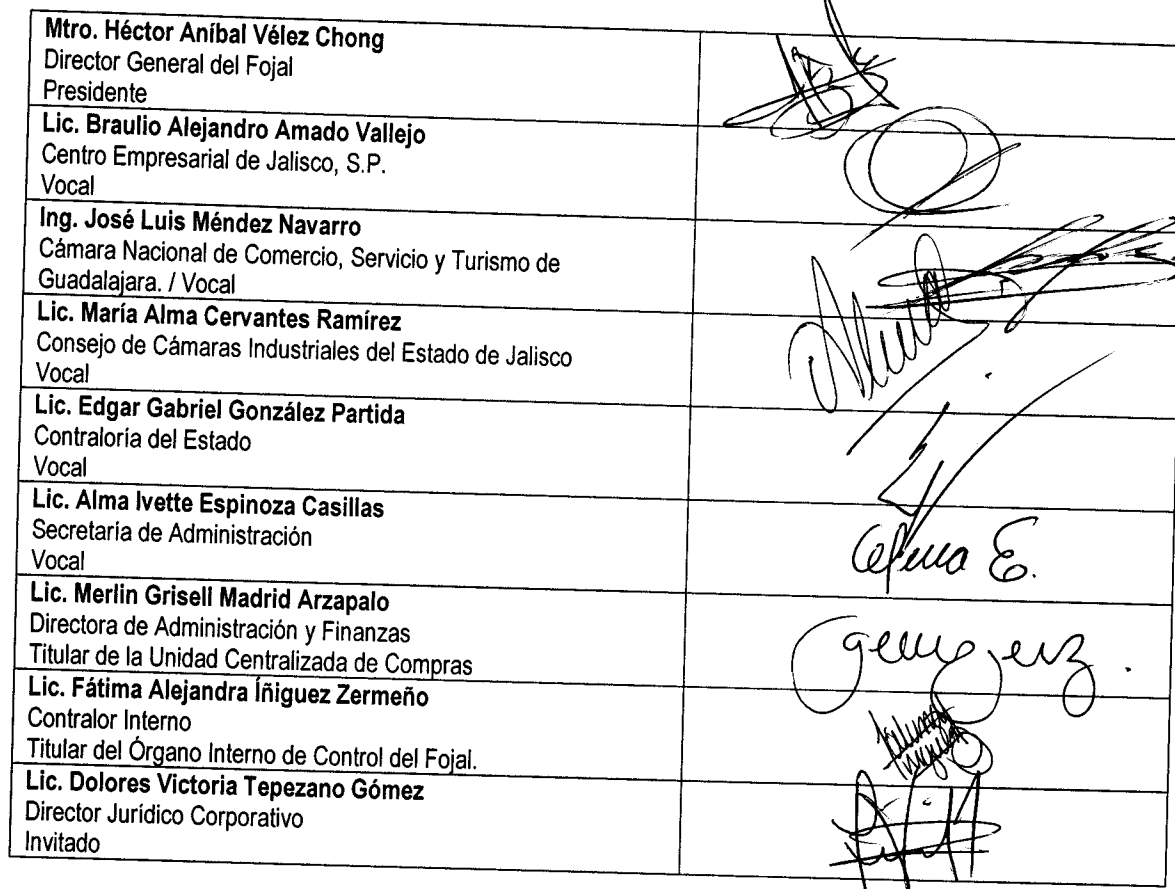 Mtro. Héctor Aníbal Vélez Chong
Director General del Fojal
Presidente
Lic. Braulio Alejandro Amado Vallejo
Centro Empresarial de Jalisco, S.P.
Vocal
Ing. José Luis Méndez Navarro
Cámara Nacional de Comercio, Servicio y Turismo de
Guadalajara. / Vocal
Lic. María Alma Cervantes Ramírez
Consejo de Cámaras Industriales del Estado de Jalisco
Vocal
Lic. Edgar Gabriel González Partida
Contraloría del Estado
Vocal
Lic. Alma Ivette Espinoza Casillas
Secretaría de Administración
Vocal
Lic. Merlin Grisell Madrid Arzapalo
Directora de Administración y Finanzas
Titular de la Unidad Centralizada de Compras
Lic. Fátima Alejandra Íñiguez Zermeño
Contralor Interno
Titular del Órgano Interno de Control del Fojal.
Lic. Dolores Victoria Tepezano Gómez
Director Jurídico Corporativo
Invitado